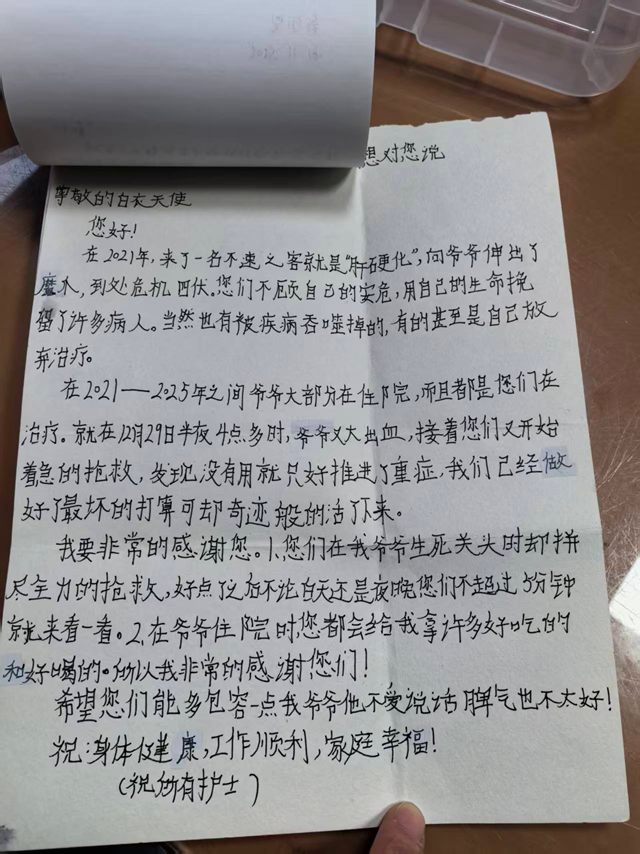 想对您说
尊敬的白衣天使
您好!
在2021年,来了一名不速之客就是“肝硬化”,向爷爷伸出了
魔爪,到处危机四伏。您们不顾自己的安危,用自己的生命挽
留了许多病人。当然也有被疾病吞噬掉的,有的甚至是自己放
弃治疗。
在2021——2025年之间爷爷大部分在住院,而且都是您们在
治疗。就在12月29日半夜4点多时,爷爷又大出血,接着您们又开始
着急的抢救,发现没有用就只好推进了重症,我们已经做
好了最坏的打算可却奇迹般的活了下来。
我要非常的感谢您。1.您们在我爷爷生死关头时却拼
尽全力的抢救,好点了之后不论白天还是夜晚您们不超过5分钟
就来看一看。2.在爷爷住院时,您都会给我拿许多好吃的
和好喝的。所以我非常的感谢您们!
希望您们能多包容一点我爷爷他不爱说话脾气也不太好!
祝:身体健康,工作顺利,家庭幸福!
(祝所有护士)